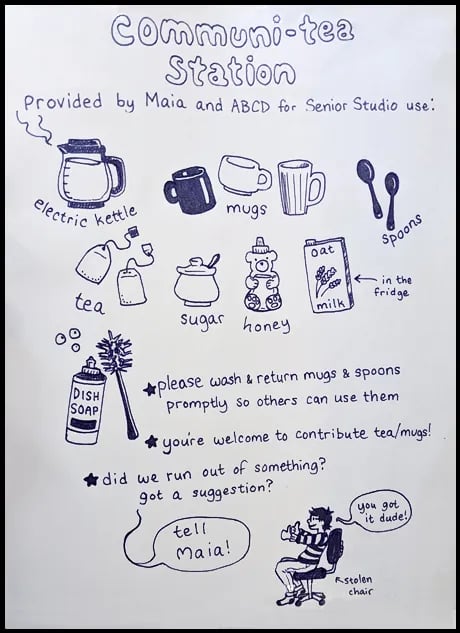 Communi-tea
Station
Provided by Maia and ABCD for Senior Studio use:
electric kettle
mugs
spoons
tea
sugar
honey
oat
milk
in the
fridge
DISH
SOAP
please wash & return mugs & spoons
promptly so others can use them
you're welcome to contribute tea/mugs!
did we run out of something?
got a suggestion?
tell
Maia!
you got
it dude!
stolen
chair